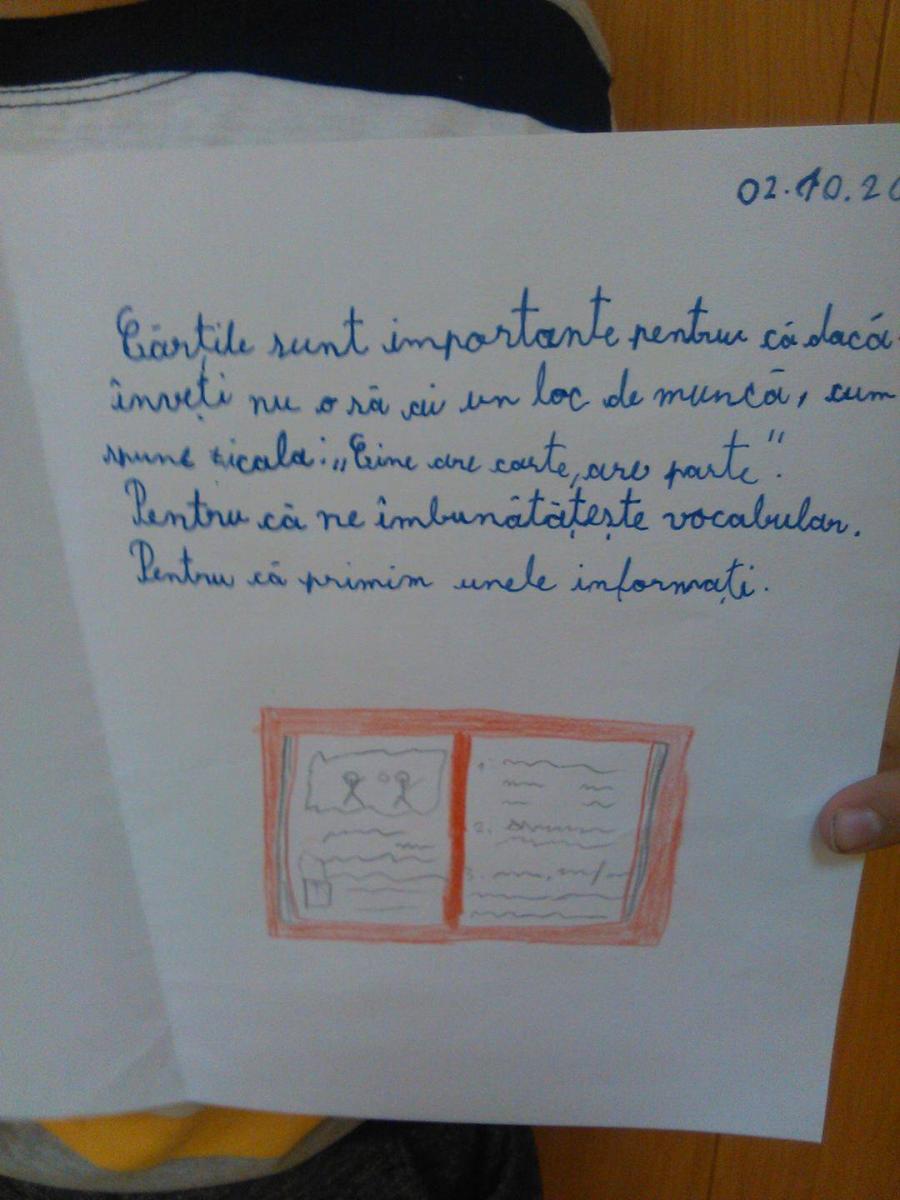 02.10.20
Cărțile sunt importante pentru că dacă
înveți nu o să ai un loc de muncă, cum
spune zicala: „Cine are carte, are parte".
Pentru că ne îmbunătățește vocabular.
Pentru că primim unele informați.
1.
2.
3.